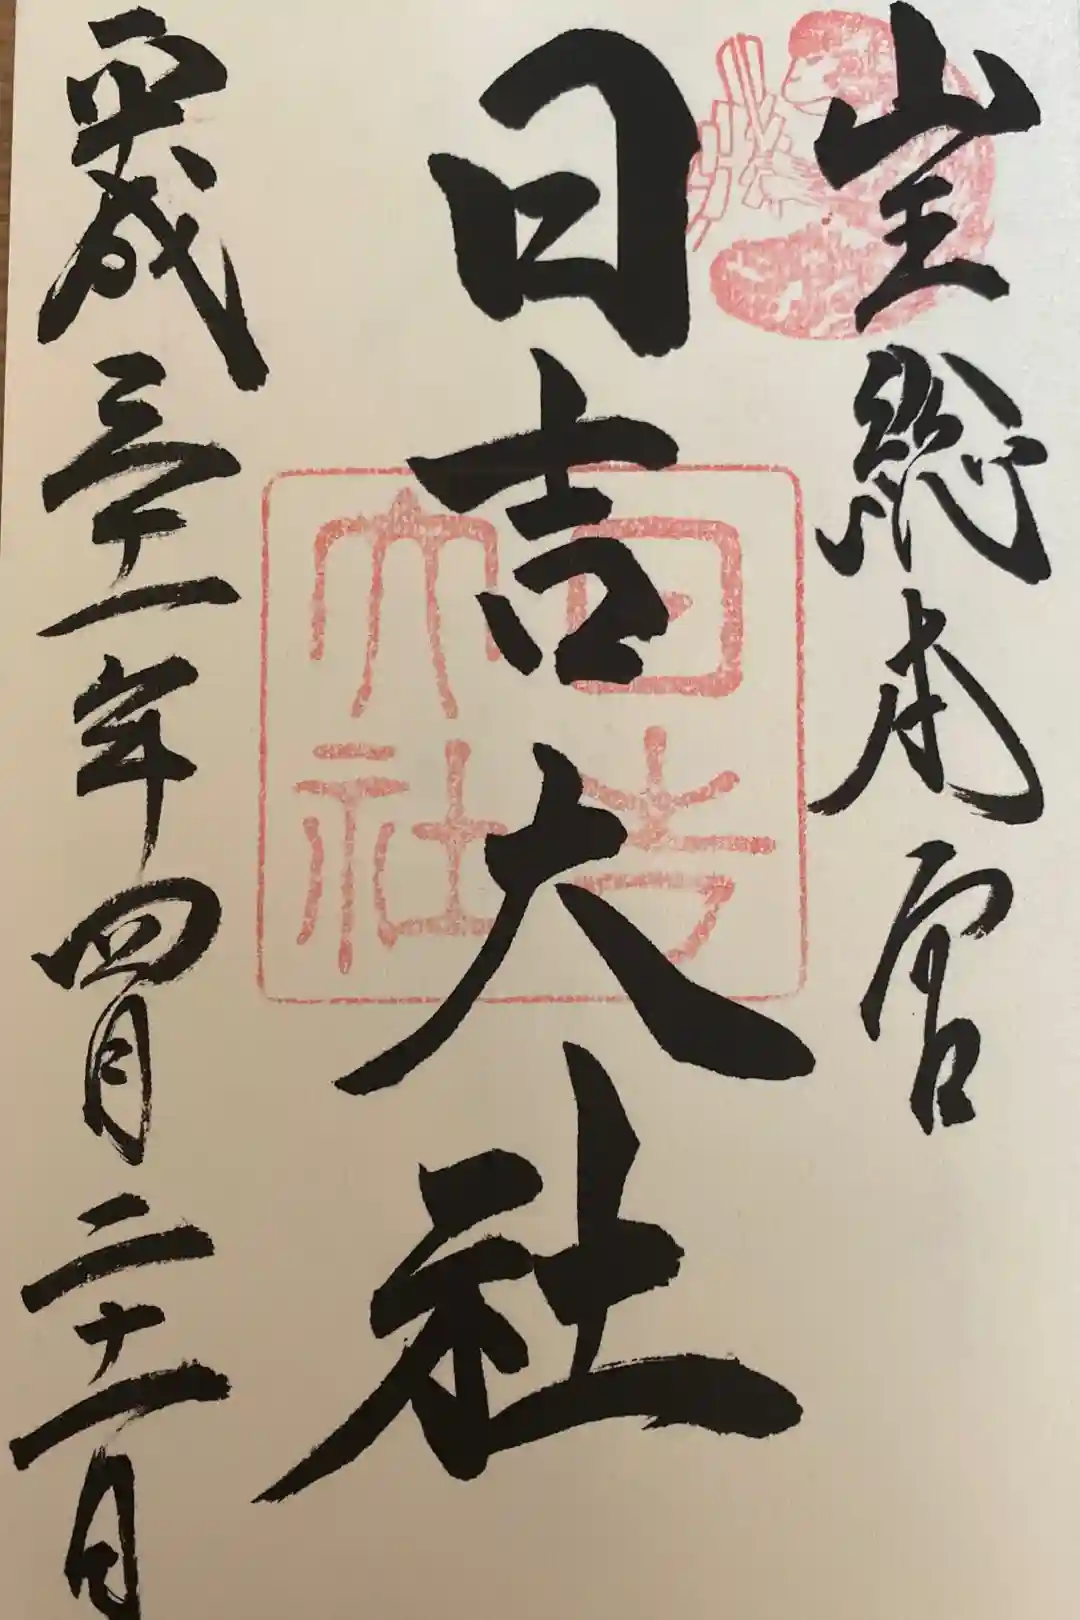 山王総本宮
日吉大社
平成三十一年四月二十一日
日吉
大社